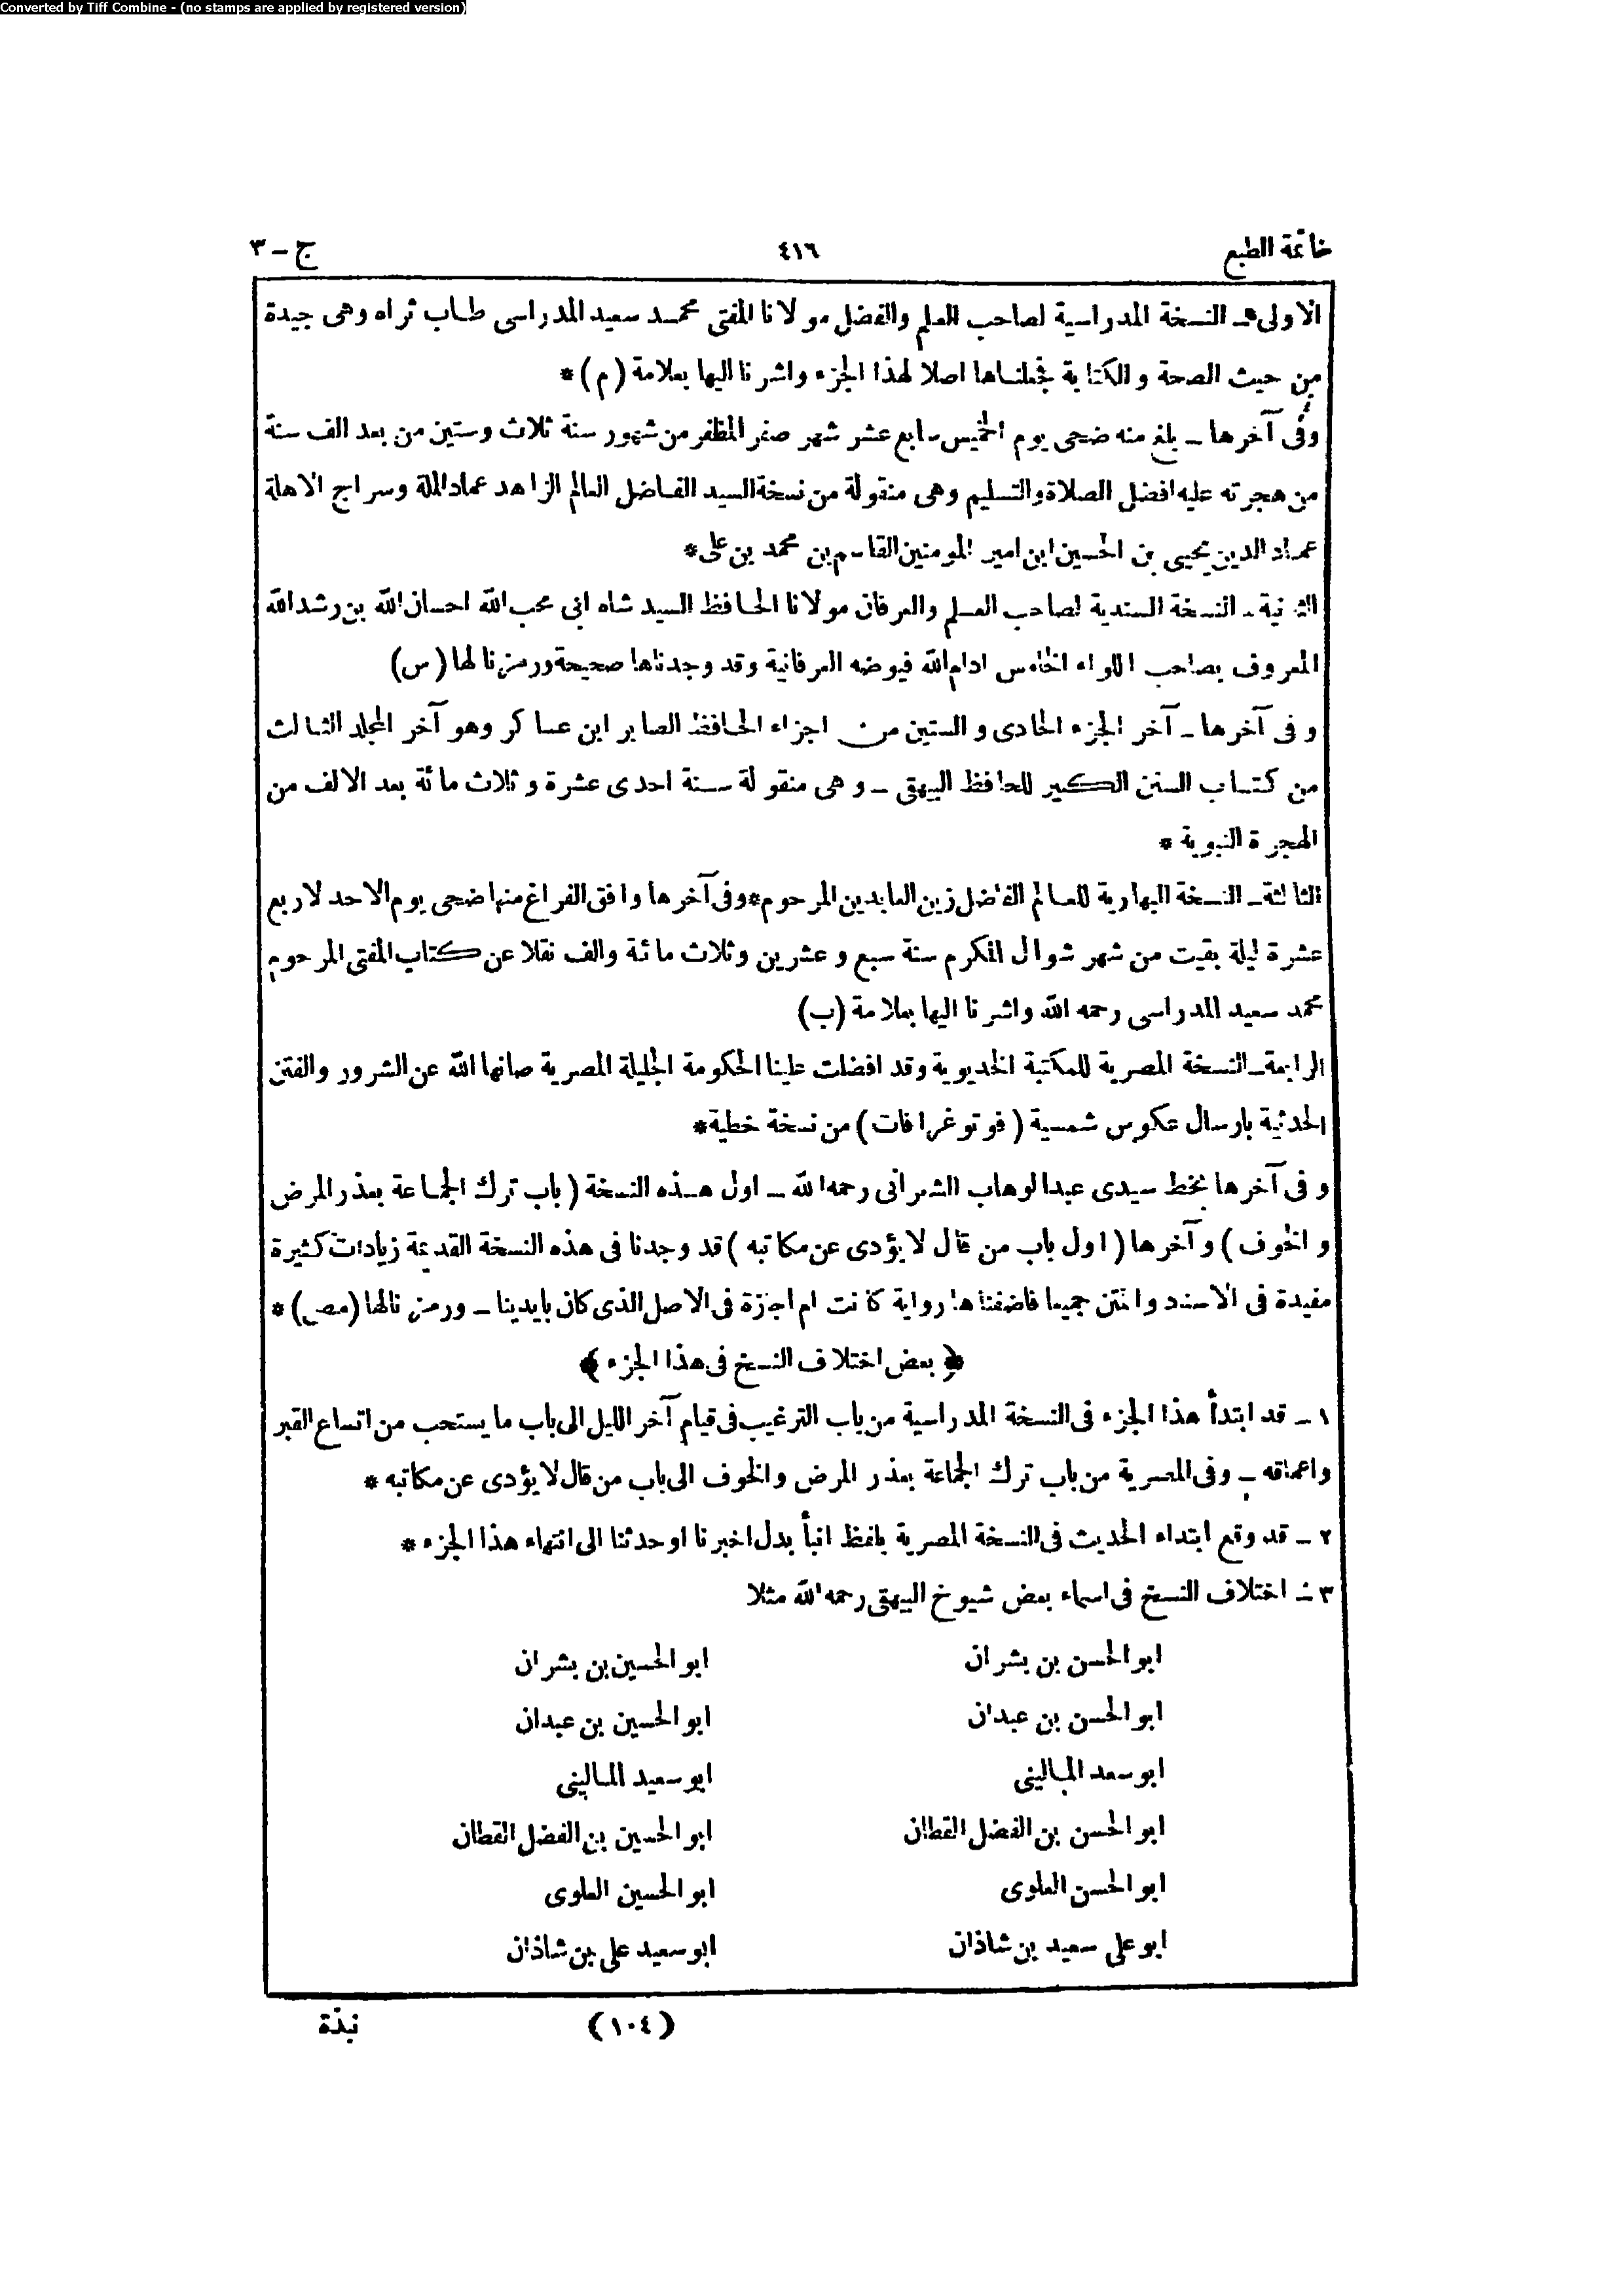 Converted by Tiff Combine - (no stamps are applied by registered version)
خاتمة الطبع ٤١٦ ج - ٣
الاولى - النسخة المدراسية لصاحب العلم والفضل مولانا المفتى محمد سعيد المدراسى طاب ثراه وهى جيدة
من حيث الصحة والكتابة فجعلناها اصلا لهذا الجزء واشرنا اليها بعلامة (م) *
وفى آخرها - بلغ منه ضحى يوم الخميس سابع عشر شهر صفر المظفر من شهور سنة ثلاث وستين من بعد الف سنة
من هجرته عليه افضل الصلاة والتسليم وهى منقولة من نسخة السيد الفاضل العالم الزاهد عماد الملة وسراج الاهلة
عماد الدين يحيى بن الحسين ابن امير المومنين القاسم بن محمد بن على *
الثانية - النسخة السندية لصاحب العلم والعرفان مولانا الحافظ السيد شاه ابى محب الله احسان الله بن رشد الله
المعروف بصاحب اللواء الخامس ادام الله فيوضه العرفانية وقد وجدناها صحيحة ورمزنا لها (س)
وفى آخرها - آخر الجزء الحادى والستين من اجزاء الحافظ الصابر ابن عساكر وهو آخر المجلد الثالث
من كتاب السنن الكبير للحافظ البيهقى - وهى منقولة سنة احدى عشرة وثلاث مائة بعد الالف من
الهجرة النبوية *
الثالثة - النسخة البهارية للعالم الفاضل زين العابدين المرحوم * وفى آخرها وافق الفراغ منها ضحى يوم الاحد لاربع
عشرة ليلة بقيت من شهر شوال المكرم سنة سبع وعشرين وثلاث مائة والف نقلا عن كتاب المفتى المرحوم
محمد سعيد المدراسى رحمه الله واشرنا اليها بعلامة (ب)
الرابعة - النسخة المصرية للمكتبة الخديوية وقد افضلت علينا الحكومة الجليلة المصرية صانها الله عن الشرور والفتن
الحدثية بارسال عكوس شمسية (فوتوغرافات) من نسخة خطية *
وفى آخرها بخط سيدى عبدالوهاب الشعرانى رحمه الله - اول هذه النسخة (باب ترك الجماعة بعذر المرض
والخوف) وآخرها (اول باب من قال لا يؤدى عن مكاتبه) قد وجدنا فى هذه النسخة القديمة زيادات كثيرة
مفيدة فى الاسند والمتن جميعا فاضفناها رواية كانت ام اجزة فى الاصل الذى كان بايدينا - ورمزنا لها (مص) *
﴿ بعض اختلاف النسخ فى هذا الجزء ﴾
١ - قد ابتدأ هذا الجزء فى النسخة المدراسية من باب الترغيب فى قيام آخر الليل الى باب ما يستحب من اتساع القبر
واعماقه - وفى المصرية من باب ترك الجماعة بعذر المرض والخوف الى باب من قال لا يؤدى عن مكاتبه *
٢ - قد وقع ابتداء الحديث فى النسخة المصرية بلفظ انبأ بدل اخبرنا او حدثنا الى انتهاء هذا الجزء *
٣ - اختلاف النسخ فى اسماء بعض شيوخ البيهقى رحمه الله مثلا
ابو الحسن بن بشران ابو الحسين بن بشران
ابو الحسن بن عبدان ابو الحسين بن عبدان
ابو سعد المالينى ابو سعيد المالينى
ابو الحسن بن الفضل القطان ابو الحسين بن الفضل القطان
ابو الحسن العلوى ابو الحسين العلوى
ابو على سعيد بن شاذان ابو سعيد على بن شاذان
(١٠٤) نبذة